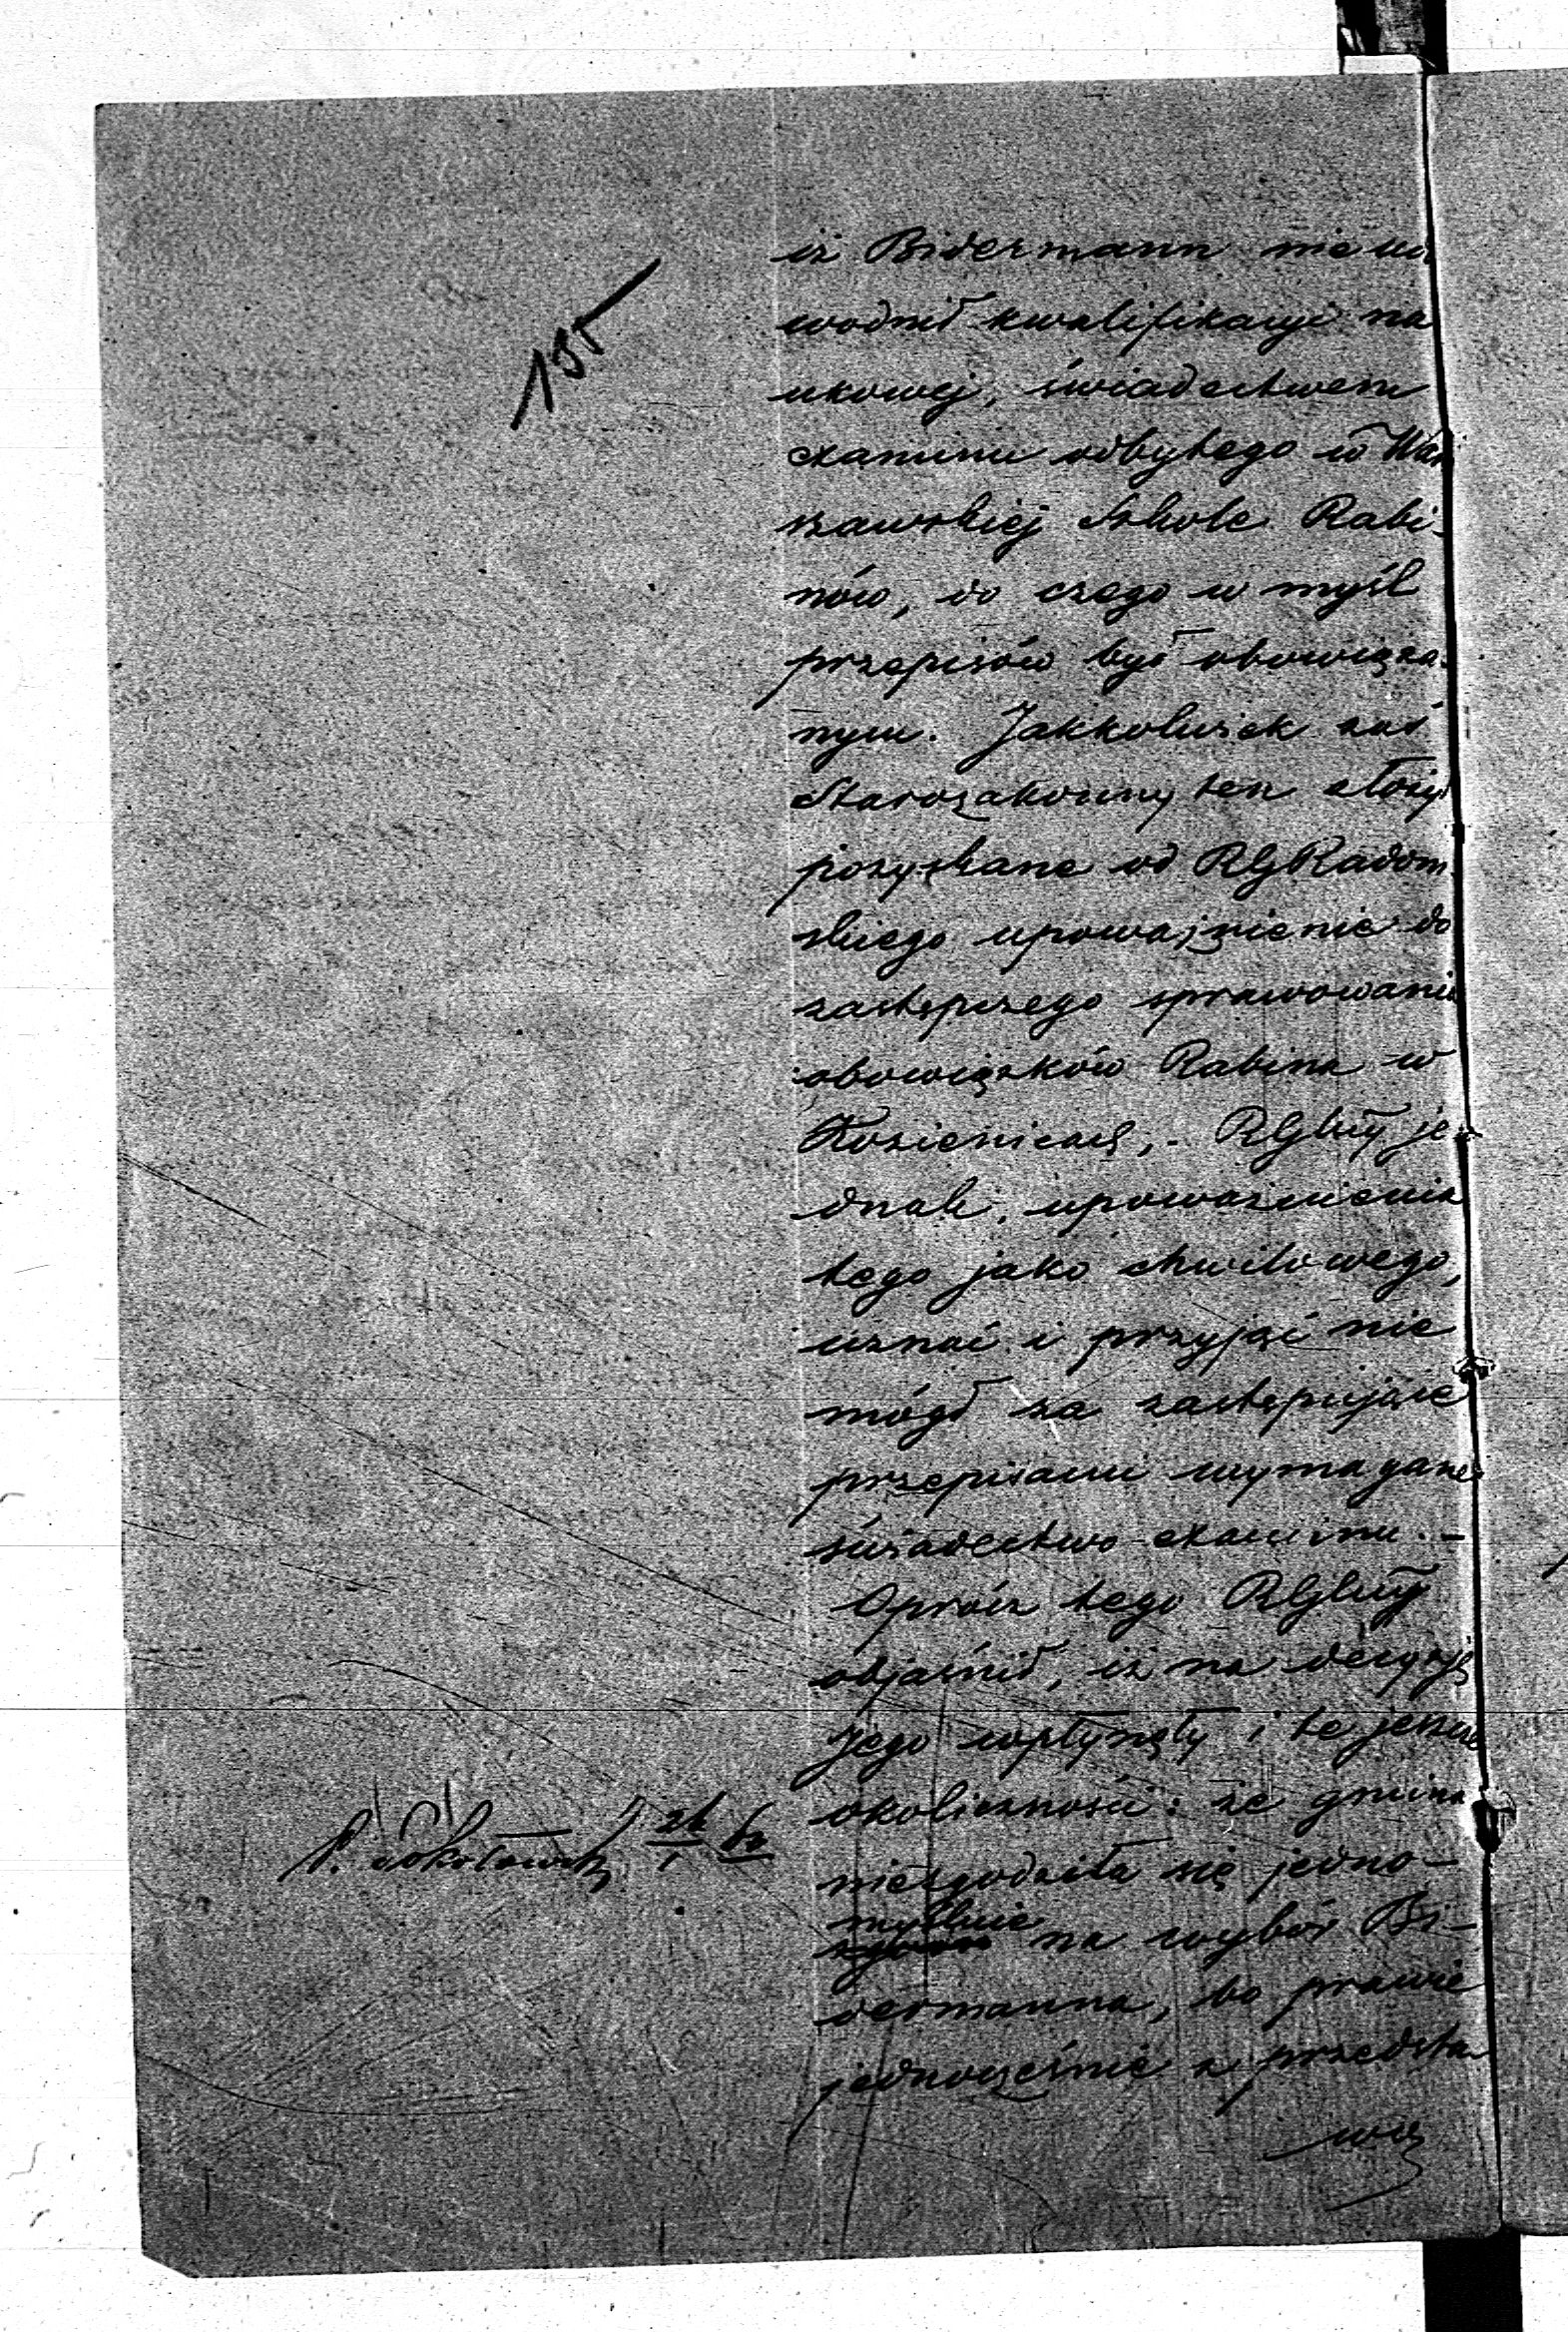 135
iż Bidermann nie u
wodnił kwalifikacyi na
ukowej, świadectwem
examinu odbytego w War
szawskiej Szkole Rabi-
nów, do czego w myśl
przepisów był obowiąza-
nym. Jakkolwiek zaś
Starozakonny ten złożył
pozyskane od RGRadom
skiego upoważnienie do
zastępczego sprawowania
obowiązków Rabina w
Kozienicach, - RGbny je-
dnak, upoważnienia
tego jako chwilowego,
uznać i przyjąć nie
mógł za zastępujące
przepisami wymagane
świadectwo examinu. -
Oprócz tego RGbny
objaśnił, iż na decyzję
Jego wpłynęły i te jeszcze
okoliczności: że gmina
niezgodziła się jedno-
myślnie
na wybór Bi-
dermanna, bo prawie
jednocześnie z przedsta
wie
P. Sokołowski 26/1 62